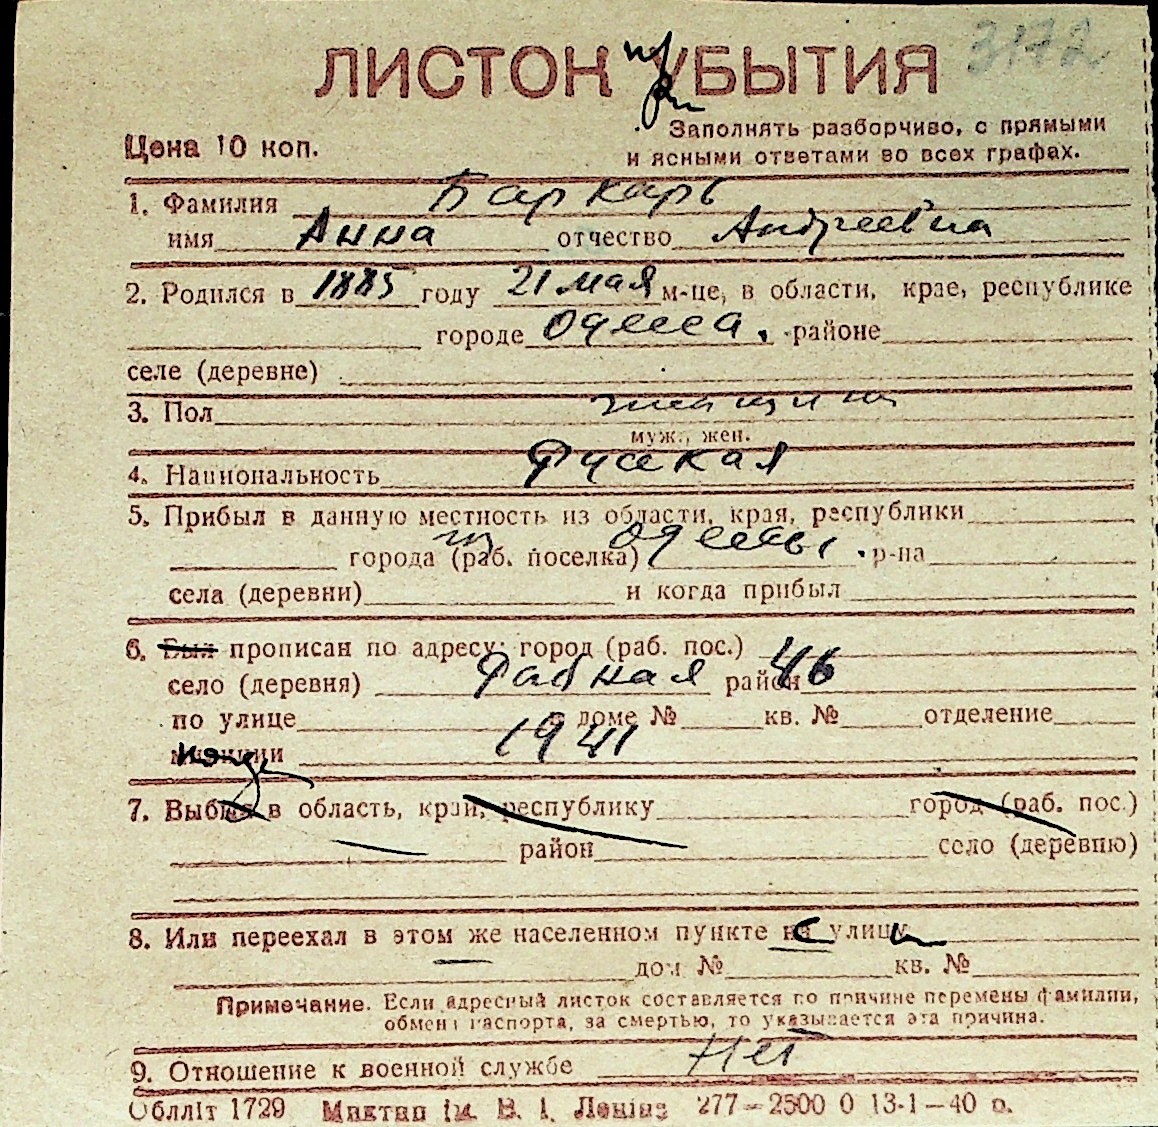 3172
ЛИСТОК УБЫТИЯ
при
Цена 10 коп.
Заполнять разборчиво, с прямыми
и ясными ответами во всех графах.
1. Фамилия Баркарь
имя Анна отчество Андреевна
2. Родился в 1885 году 21 мая м-це, в области, крае, республике
городе Одесса, районе
селе (деревне)
3. Пол
муж., жен.
4. Национальность Русская
5. Прибыл в данную местность из области, края, республики
города (раб. поселка) Одессы, р-на
села (деревни) и когда прибыл
6. Был прописан по адресу: город (раб. пос.)
село (деревня) район 46
по улице в доме № кв. № отделение
милиции 1941
7. Выбыл в область, край, республику город (раб. пос.)
район село (деревню)
8. Или переехал в этом же населенном пункте на с улицу и
дом № кв. №
Примечание. Если адресный листок составляется по причине перемены фамилии,
обмена паспорта, за смертью, то указывается эта причина.
9. Отношение к военной службе Нет
Обллiт 1729 Миктип iм. В. I. Ленiна 277—2500 0 13-1—40 р.